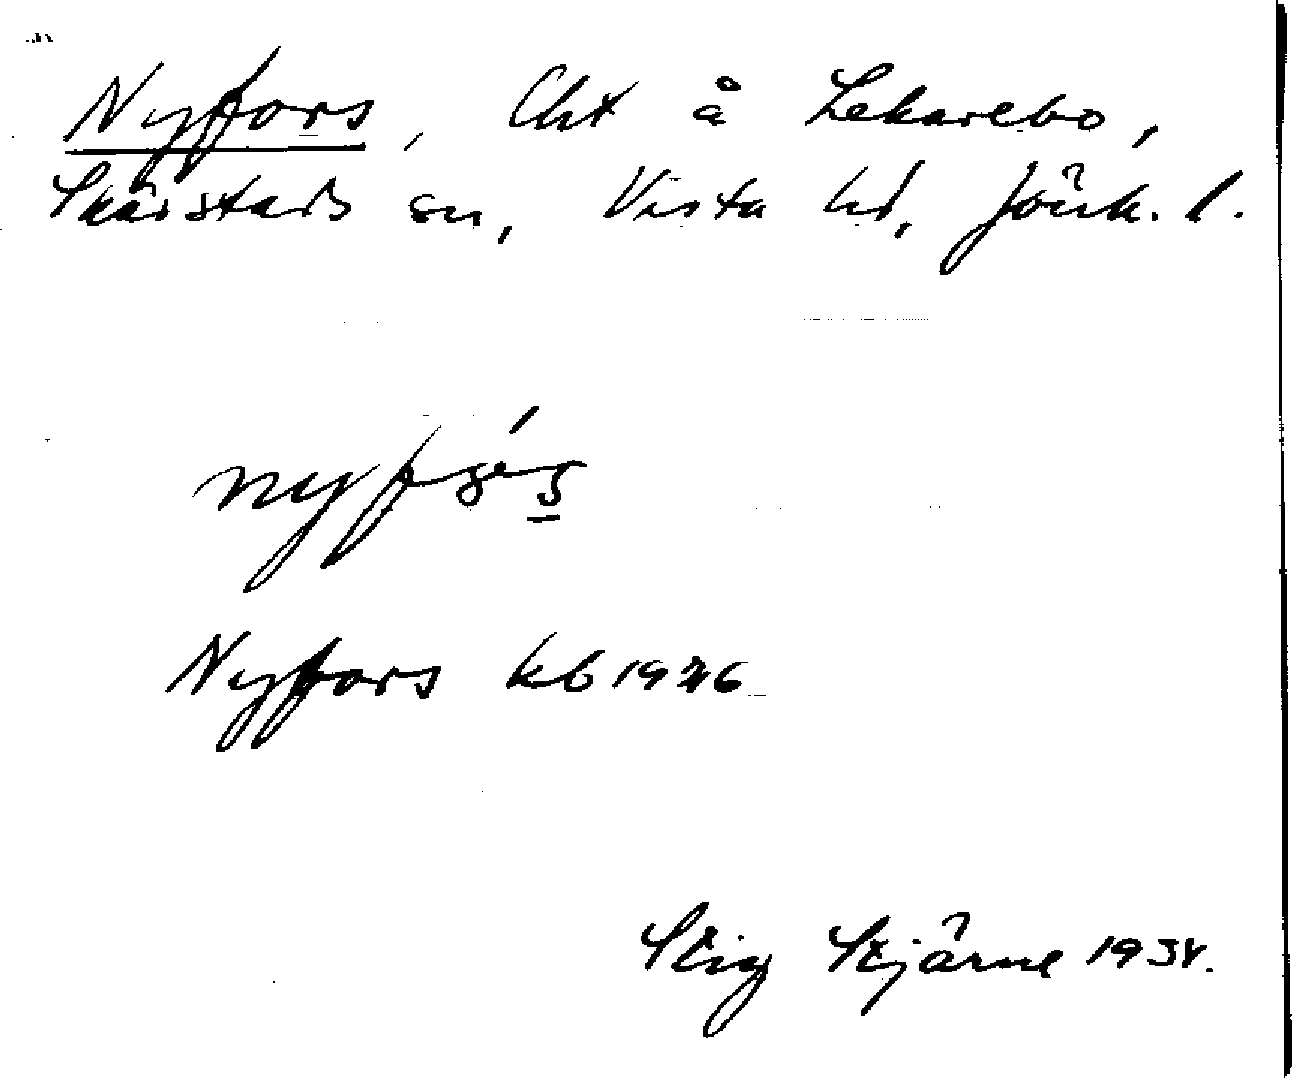 Nyfors, Cht å Lekarebo,
Skärstads sn, Vista hd, Jönk. l.
Nyfors kb 1926
Stig Stjärne 1934.